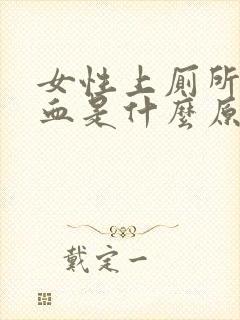 女性上厕所
血是什麼原
戴定一